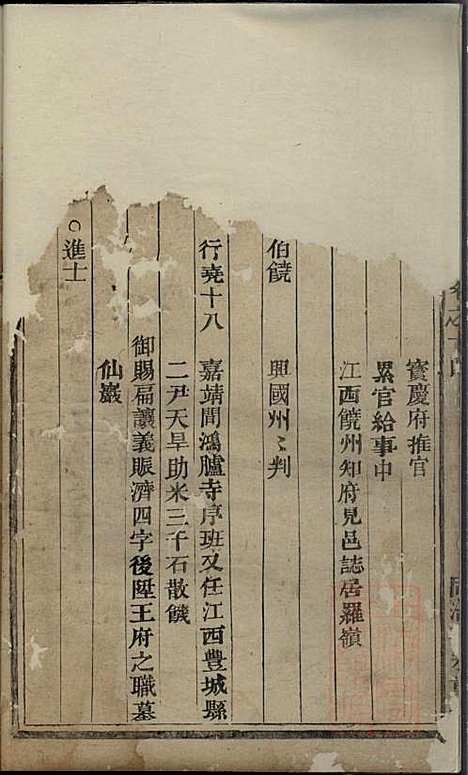 寳慶府推官
累官給事中
江西饒州知府見邑誌居羅嶺
伯饒
興國州〻判
行堯十八
嘉靖間鴻臚寺序班又任江西豐城縣
二尹天旱助米三千石散饑
御賜扁讓義賑濟四字後陞王府之職墓
仙巖
○進士